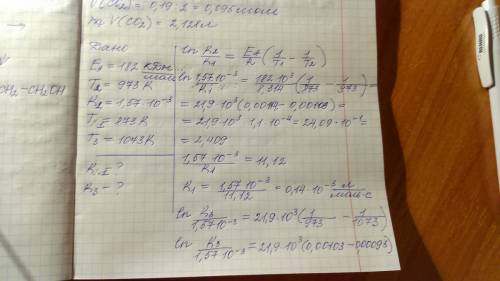 V(Cl₂) = 0,19 : 2 = 0,095 моль
m V(CO₂) = 2,128 л
CH₂-CH₂OH
Дано
E₁ = 182 кДж/моль
T₂ = 973 K
K₂ = 1,57 · 10⁻³
T₁ = 873 K
T₃ = 1073 K
K₁ - ?
K₃ - ?
ln K₂/K₁ = Ea/R (1/T₁ - 1/T₂)
ln 1,57·10⁻³/K₁ = 182·10³/8,314 (1/873 - 1/973) =
= 21,9 · 10³ (0,0014 - 0,00103) =
= 21,9 · 10³ · 1,1 · 10⁻⁴ = 24,09 · 10⁻¹ =
= 2,409
1,57 · 10⁻³/K₁ = 11,12
K₁ = 1,57 · 10⁻³/11,12 = 0,14 · 10⁻³ л/моль·с
ln K₃/1,57·10⁻³ = 21,9 · 10³ (1/973 - 1/1073)
ln K₃/1,57·10⁻³ = 21,9 · 10³ (0,00103 - 0,00093)